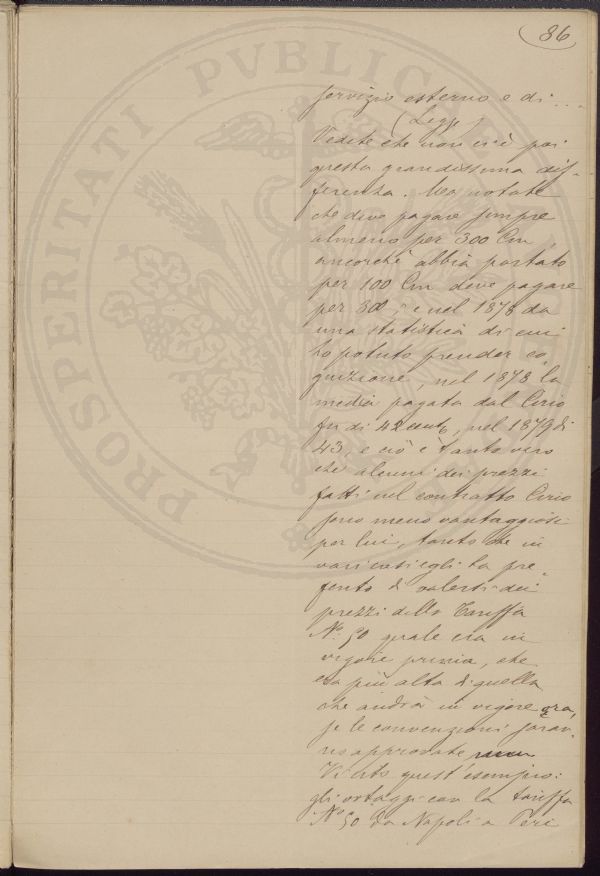 86
PROSPERITATI PVBLICAE
servizio esterno e di....
(Legge)
Vedete che non ci è poi
questa grandissima dif-
ferenza. Ma notate
che deve pagare sempre
almeno per 300 Cm,
ancorchè abbia portato
per 100 Cm deve pagare
per 300; e nel 1878 da
una statistica di cui
ho potuto prender co
gnizione, nel 1878 la
media pagata dal Cirio
fu di 42 cent, nel 1879 di
43, e ciò è tanto vero
che alcuni dei prezzi
fatti nel contratto Cirio
sono meno vantaggiosi
per lui, tanto che in
vari casi egli ha pre
ferito di valersi dei
prezzi della Tariffa
No. 50 quale era in
vigore prima, che
era più alta di quella
che andrà in vigore ora,
se le convenzioni saran-
no approvate
Vi cito quest'esempio:
gli ortaggi con la tariffa
No 50 da Napoli a Peri